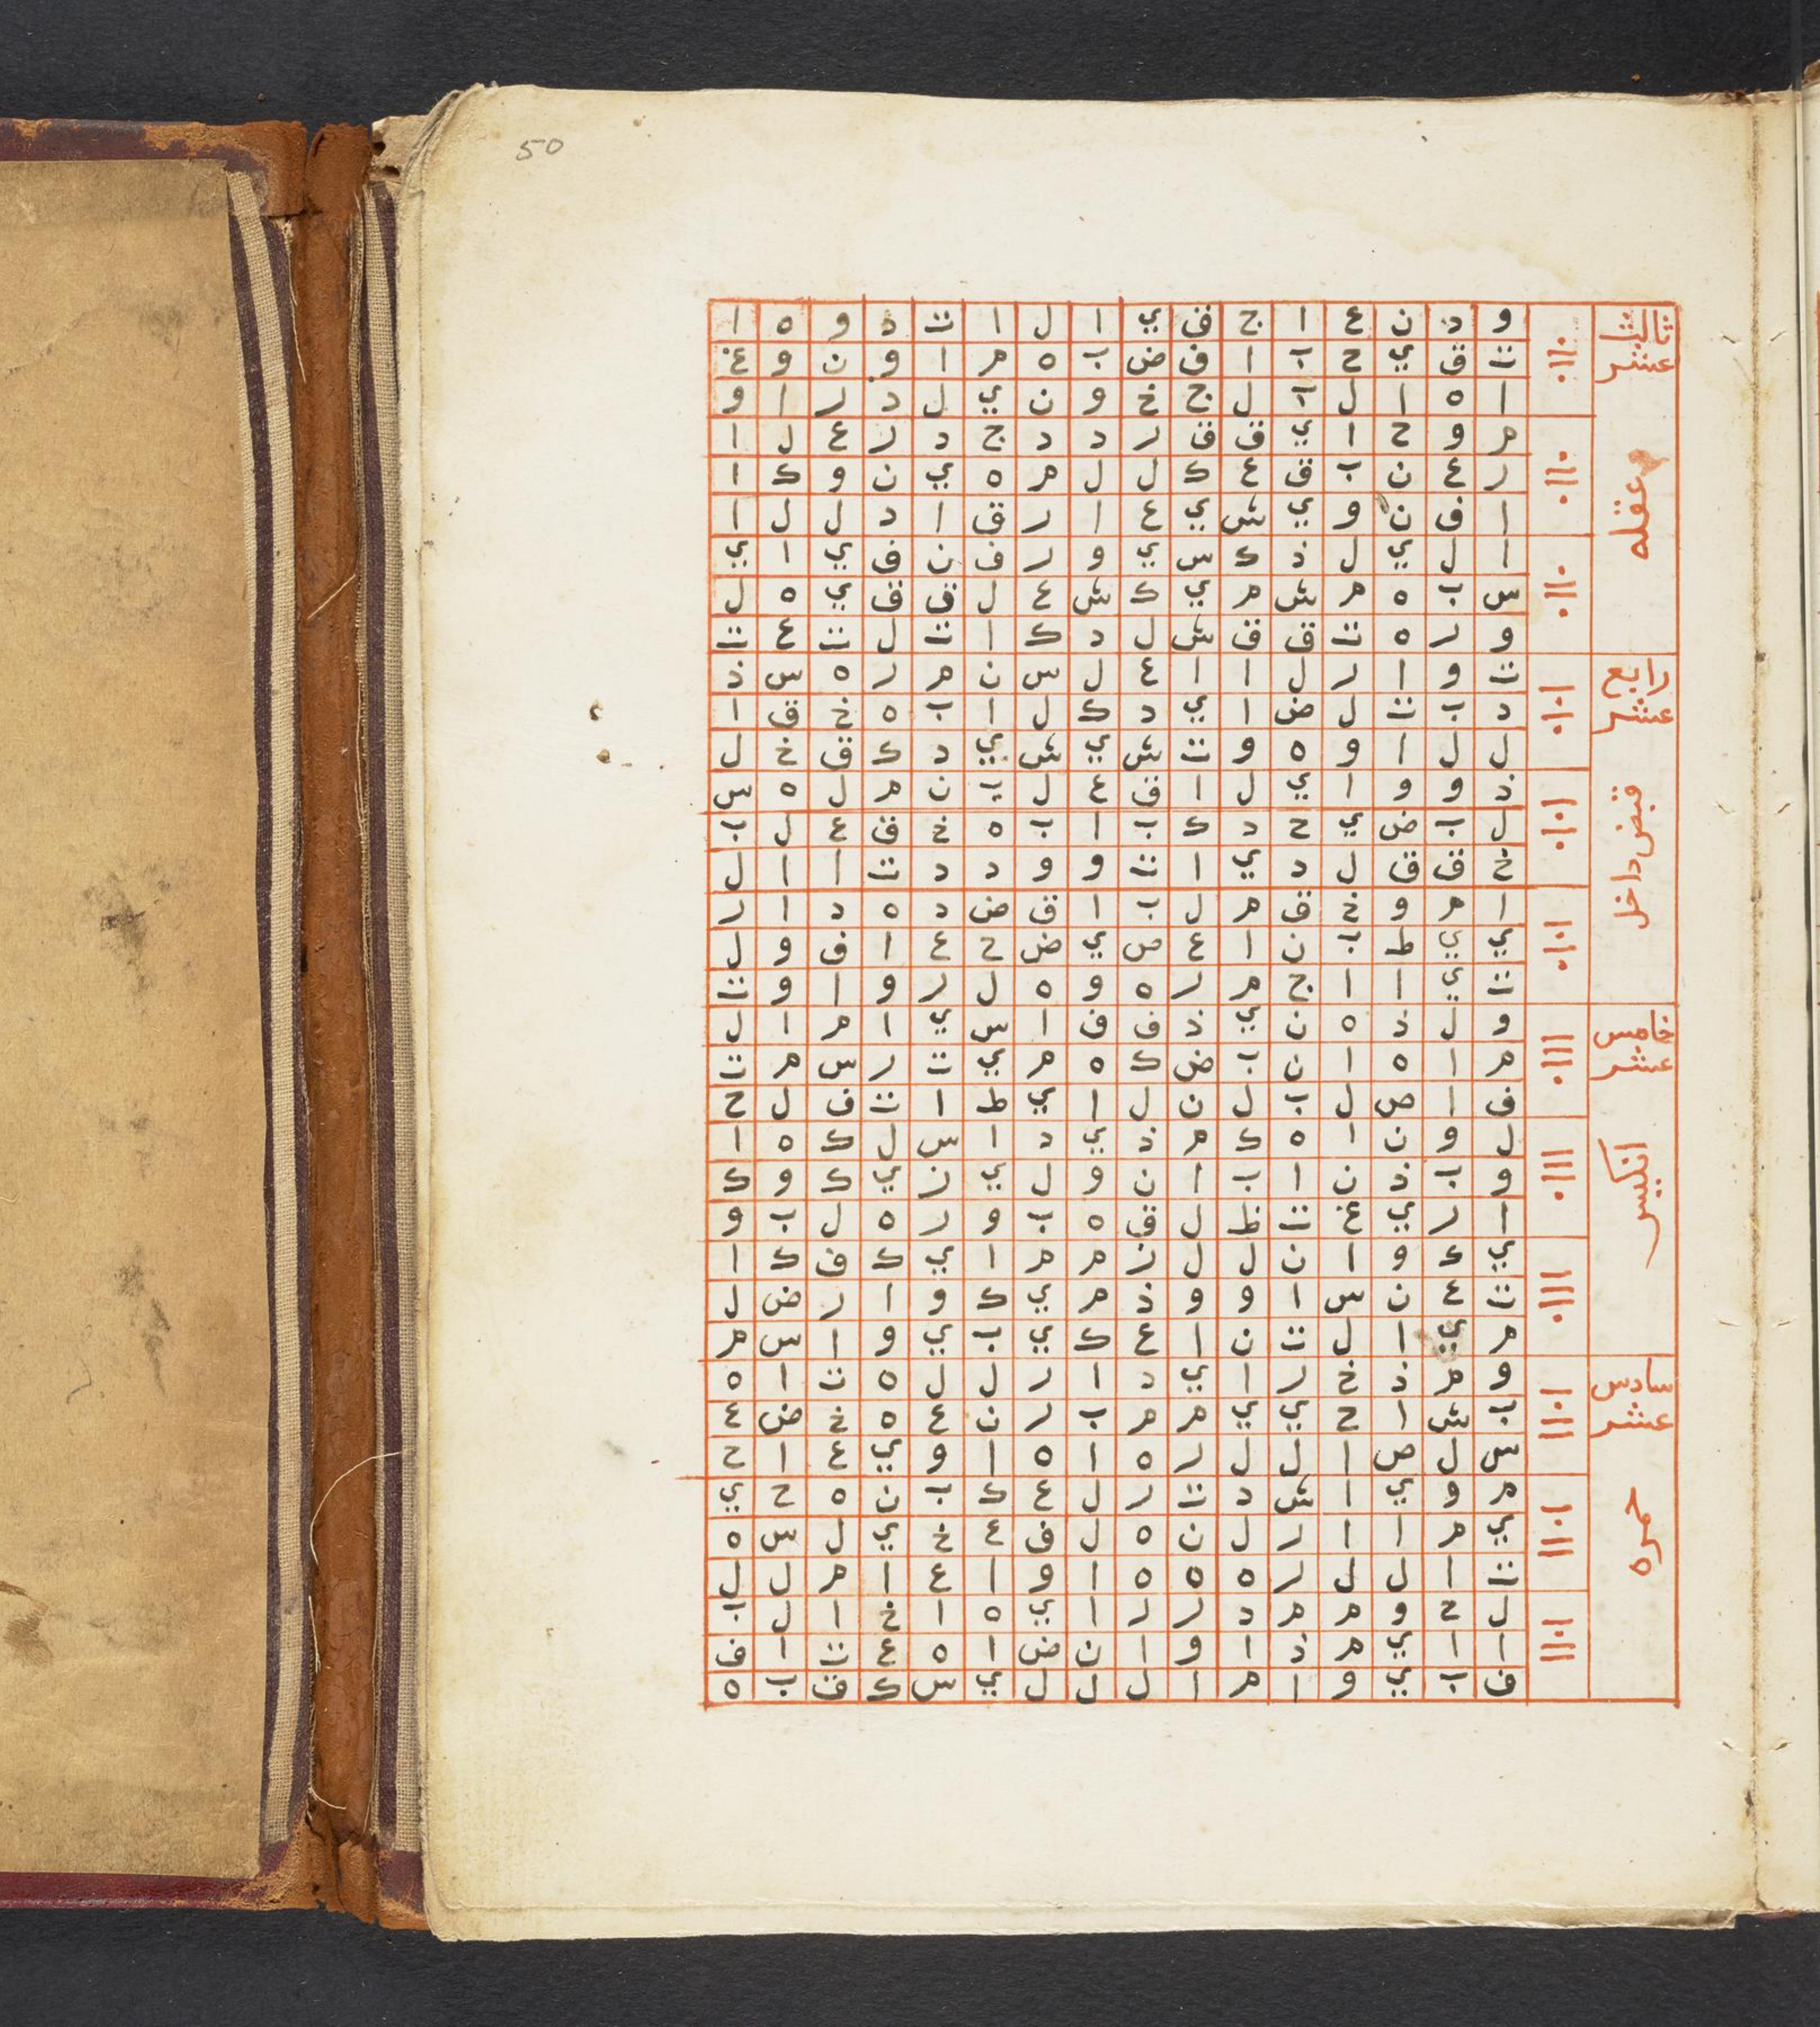 50
ثالث عشر
عقله
و د ن ع ا ج ف ي ا ل ا ت د و ه ا
ت ق ي ح ب ا ف ض ب ه م ا و ن و غ
ا ه ا ل ت ل ج خ و ن ي ل د ر ا و
م و ح ا ي ق ق ر د د ج د ر ع ل ا
ر ع ن ب ق ع ك ل ل م ه ي ن و ك ا
ا ف ن و ي ش ي ع ا ر ق ا د ل ل ا
ا ل ي ل ذ ك س ي و ر ف ن ف ي ا ي
س ب ه م ش م ي ك ش ع ل ق ق ي ه ل
و ر ه ت ق ق ش ل د ك ا ت ل ت ع ت
رابع عشر
قبض داخل
ت و ا ر ل ا ا ع ل س ن م ر ه س ذ
د ب ت ل ض ا ي د ك ل ا ب ه خ ق ا
ل ل ا و ه و ت ش ي ش ي د ك ق خ ل
ذ و و ا ي ل ا ق ع ل ب ن م ل ه س
ل ب ض ي ح د ك ب ا ب ه خ ق ع ل ب
خ ق ق ل د ي ا ت و و د د ت ا ا ل
ا م و خ ق م ل ب ا ق ض د ه د ا ر
ي ي ط ب ن ا ع ص ي ض ح ع ا ف و ل
ت ي ا ا ج م ر ه و ه ل ر و ا و ت
خامس عشر
انكيس
و ل ذ ه ن ي ذ ف ف ا س ي ا م ا ل
م ا ه ا ن ب ض ك ه م ي ت ر س م ت
ف ا ص ل ب ل ن ل ا ي ط ا ت ف ل ح
ل و ن ا ه ك م ذ ي د ا س ل ك ه ا
و ب ذ ن ا ب ا ن و ل ي ن ي ك و ك
ا ر ي غ ت ظ ل ق ه ب و ر ه ل ب و
ي ك و ا ن ل ل ن م م ا ي ك ف ك ا
ت ع ن س ا و و ذ م ي ك و ا ر ض ل
م ي ا ل ت ن ا ع ك ي ب ي و ا س م
سادس عشر
حمره
و م ذ خ ر ا ي د ا ر ل ل ه ت ا ه
ب ش ا ح ي ي م م ب ر ن ع ه خ ض ع
س ل ص ا ل ل ر ه ا ه ا و ي ع ا ح
م و ي ا ش د ت ر ل ع ك ب ن ه ح ي
ي م ا ا ر ل ن ه ل ف ع خ ي ل س ه
ت ا ل ل ر ه ه ه ا و ا ع ا م ل ل
ل ح و م م د ر ر ا ي ه ا خ ا ل ب
ا ا ي م ذ ا و ا ن ض ا ه ع ت ا ف
ف ب ي و ا م ا ل ل ل ي س ك ق ب ه